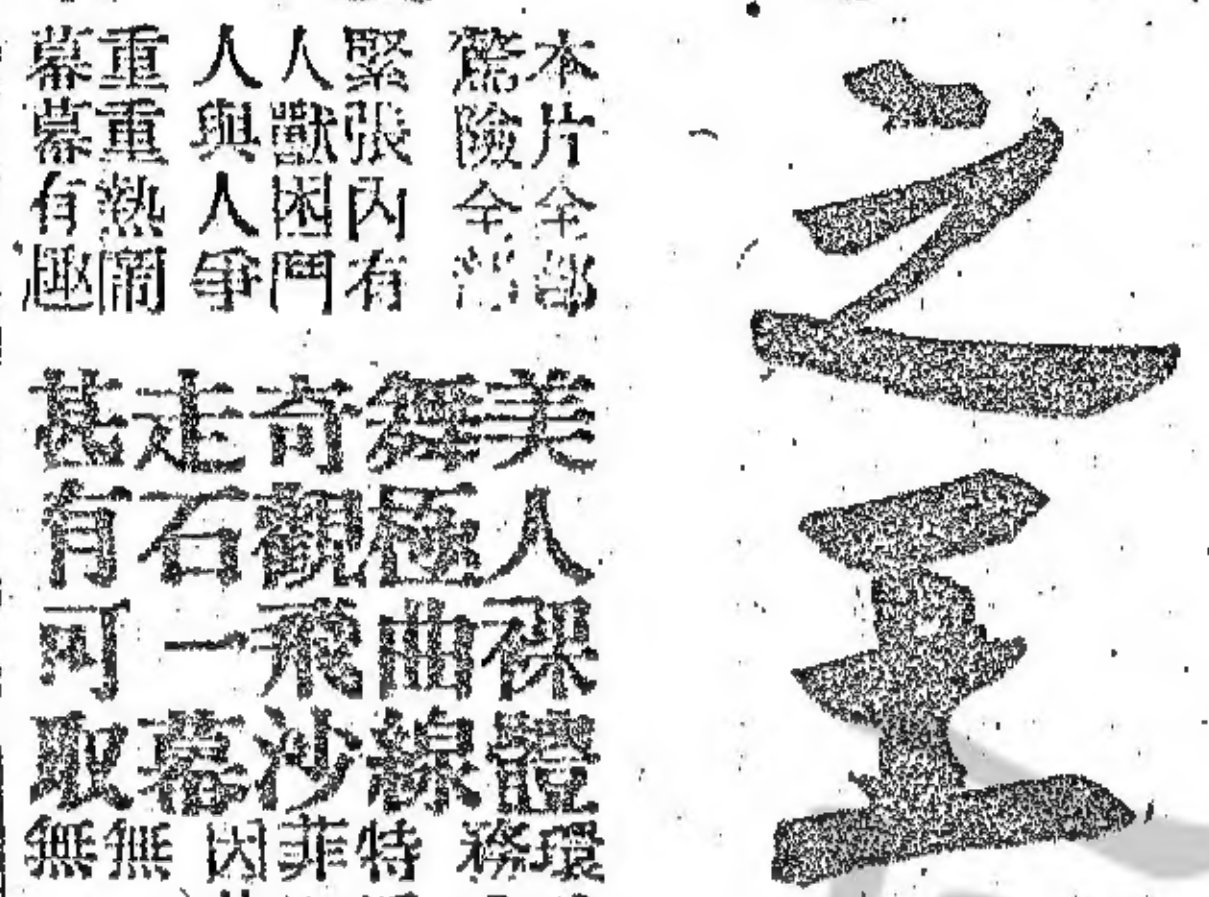 之王
本片全部
驚險全
緊張內有
人獸困鬥
人與人爭
重重熱鬧
幕幕有趣
美人裸體
舞極曲線
奇觀飛沙
走石一幕
甚有可取
環
務
特
菲
因
無
無